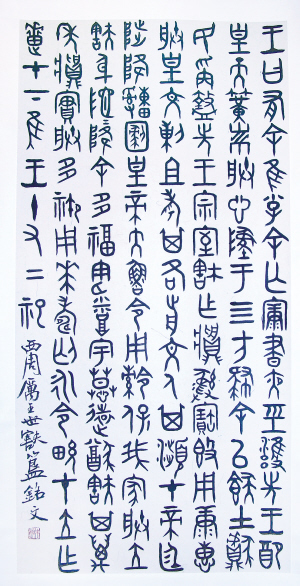 王曰有余隹小子余亡康晝夜巠雝先王用配
皇天簧黹朕心墜于四方肆余以餗士獻
民爯盩先王宗室㝬乍將彝寶簋用康惠
朕皇文剌且考其各前文人其瀕才帝廷
陟降申恪皇帝大魯令用令保我家朕立
㝬身阤降余多福憲烝宇慕遠猷㝬其萬
年將實朕多禦用祓壽匄永令畯才立乍
疐才下隹王十又二祀
西周厲王世㝬簋銘文